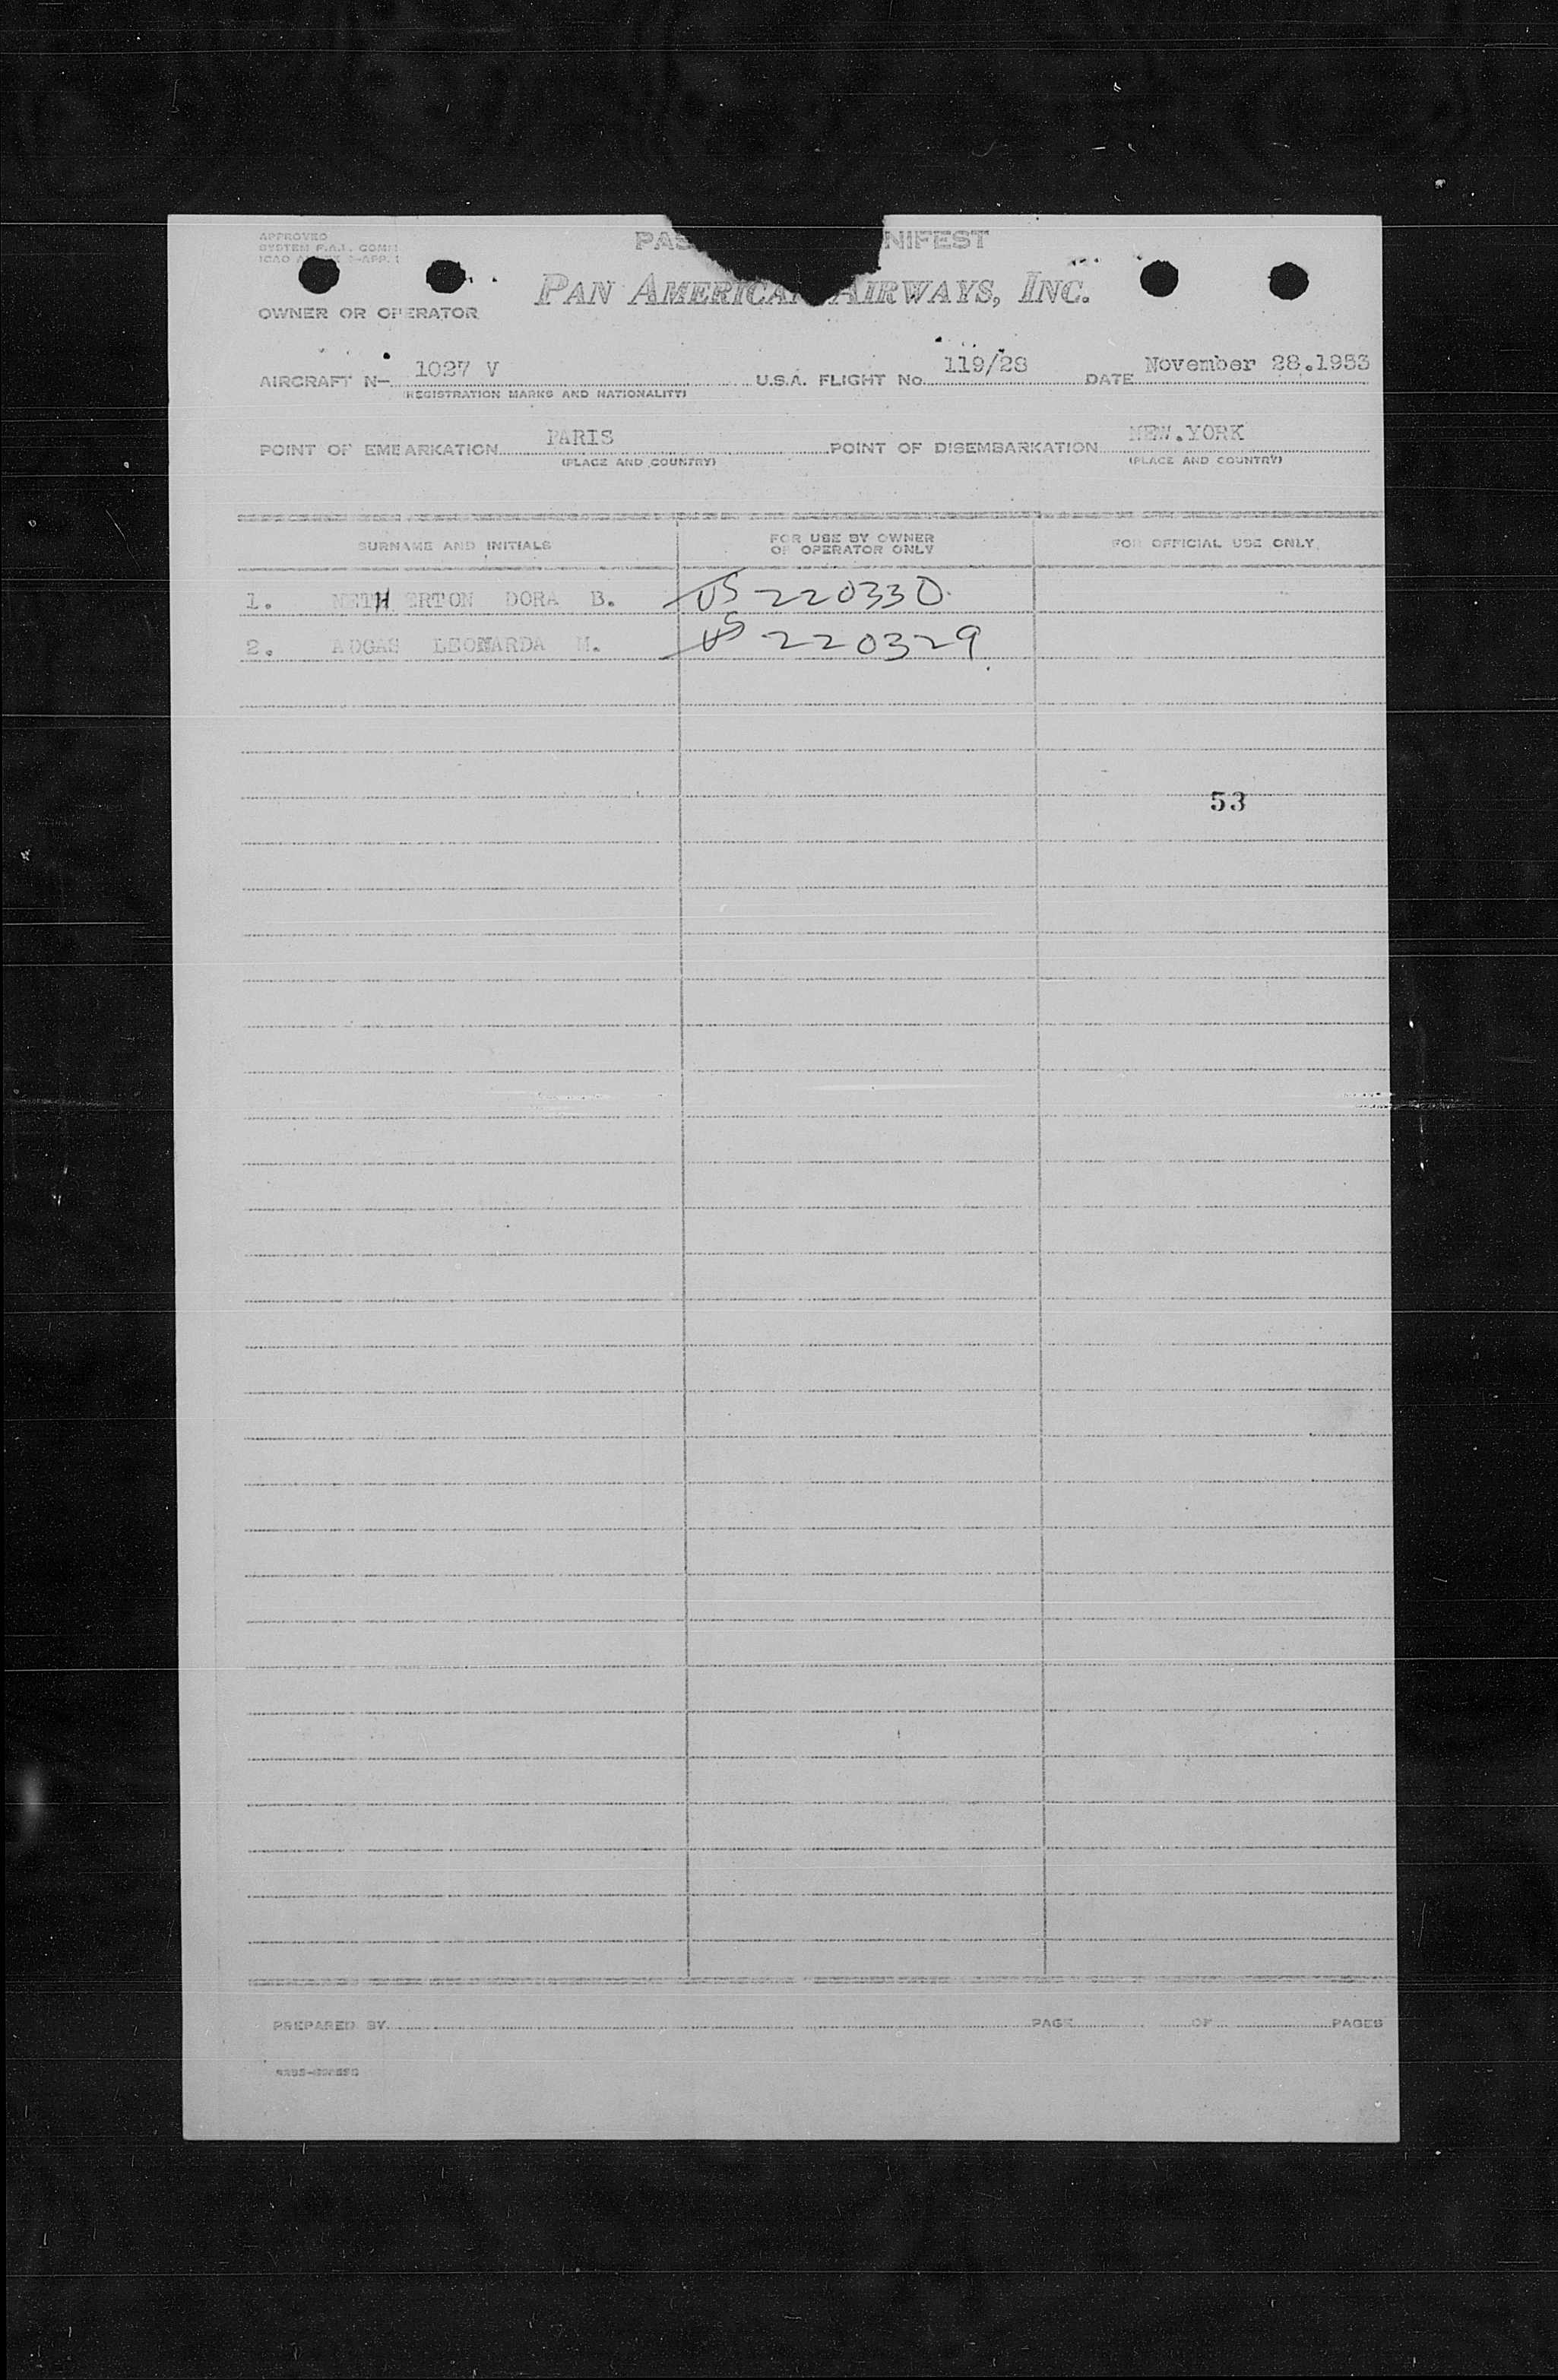 APPROVED
SYSTEM F.A.L. COMM
ICAO
PAS NIFEST
PAN AMERICAN AIRWAYS, INC.
OWNER OR OPERATOR
AIRCRAFT N- 1027 V U.S.A. FLIGHT No. 119/28 DATE November 28.1953
(REGISTRATION MARKS AND NATIONALITY)
POINT OF EMBARKATION PARIS POINT OF DISEMBARKATION NEW.YORK
(PLACE AND COUNTRY) (PLACE AND COUNTRY)
SURNAME AND INITIALS FOR USE BY OWNER FOR OFFICIAL USE ONLY
OR OPERATOR ONLY
1. NETHERTON DORA B. US 220330
2. ADGAS LEONARDA M. US 220329
53
PREPARED BY PAGE OF PAGES